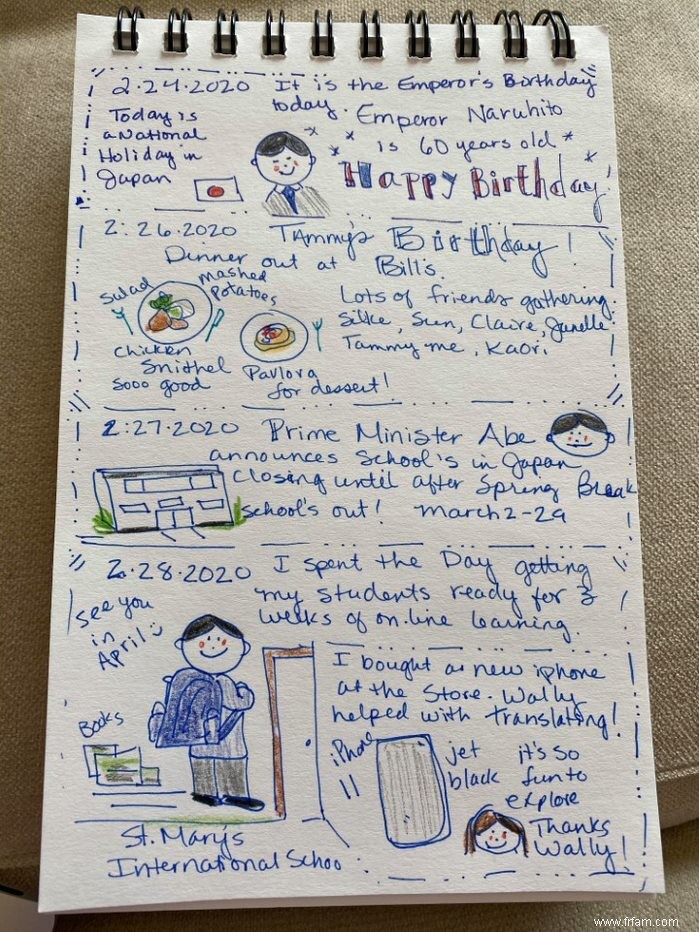 2.24.2020 It is the Emperor's Birthday
today. Emperor Naruhito
is 60 years old
Happy Birthday!
Today is
a National
Holiday in
Japan
2.26.2020 Tammy's Birthday!
Dinner out at Bill's.
Salad
mashed
potatoes
Chicken
Snithel
Sooo good
Pavlova
for dessert!
Lots of friends gathering.
Silke, Sun, Claire, Janelle
Tammy me, Kaori
2.27.2020 Prime Minister Abe
announces School's in Japan
Closing until after Spring Break
School's out! March 2-29
2.28.2020 I spent the Day getting
my students ready for 3
weeks of on-line learning.
see you
in
April
Books
St. Mary's
International Schoo
I bought a new iphone
at the Store. Wally
helped with translating!
iPhone
11
jet
black
it's so
fun to
explore
Thanks
Wally!
www.frfam.com